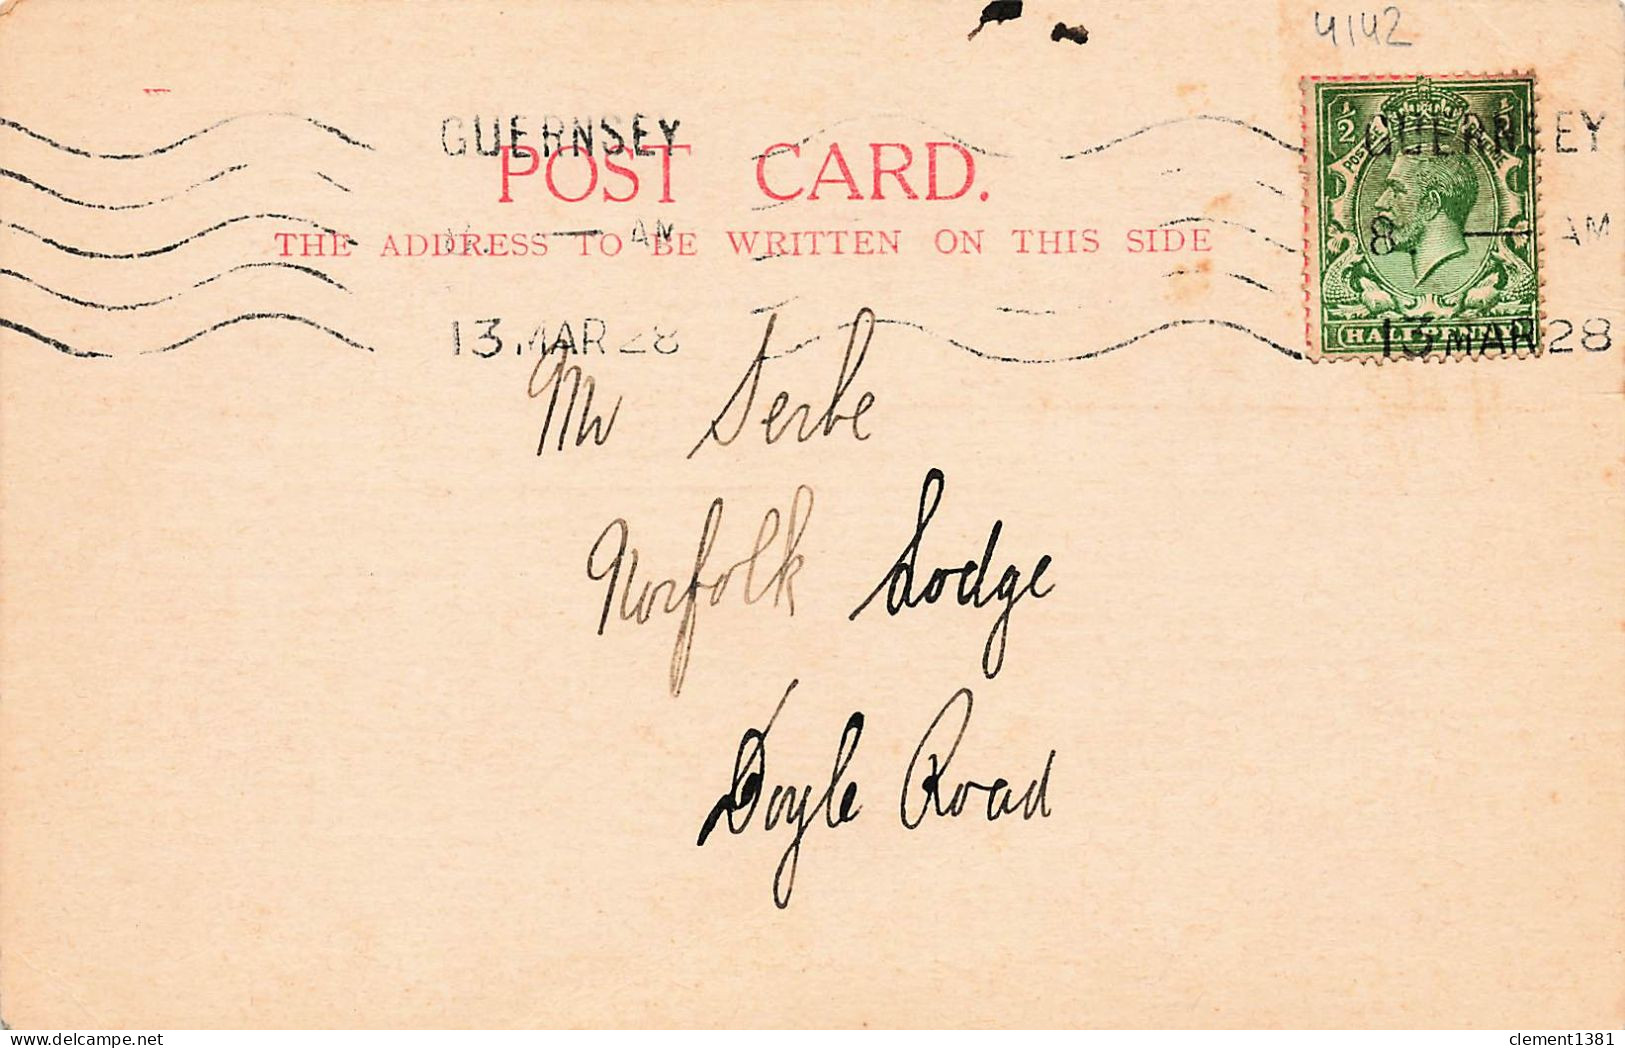 4142
GUERNSEY
GUERNSEY
POST CARD.
AM
8 AM
THE ADDRESS TO BE WRITTEN ON THIS SIDE
13 MAR 28
13 MAR 28
½ ½
HALFPENNY
Mr Serbe
Norfolk Lodge
Doyle Road
clement1381